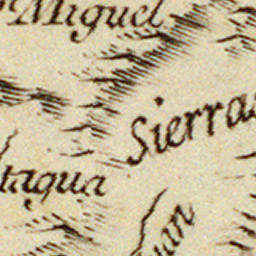 Miguel
Sierras
tagua
uan